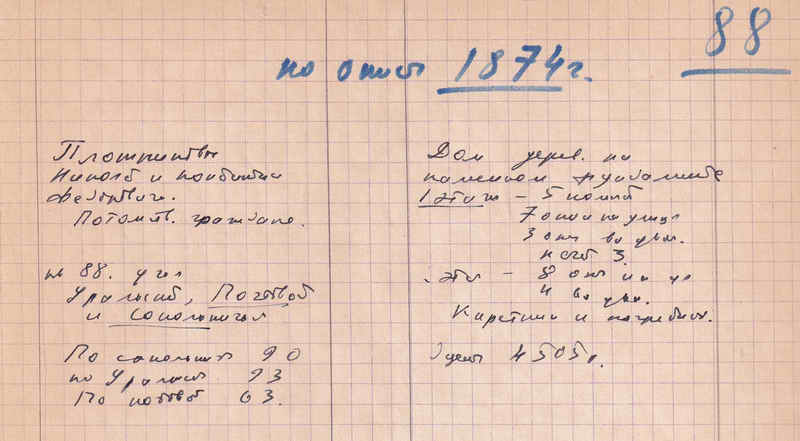 88
по описи 1874 г.
Плотниковы
Николай и
Потомств. граждане.
№ 88. угол
Уральской, Почтовой
и Сокольничьей
По сокольнич 90
по Уральск 93
По почтовой 63.
Дом дерев. на
каменном фундаменте
1 этаж – 5 комнат
7 окон на улицу
3 окн во двор.
3.
этаж – 8 окн на ул
4 во двор.
Каретник и погребица.
Оцен 4505 р.